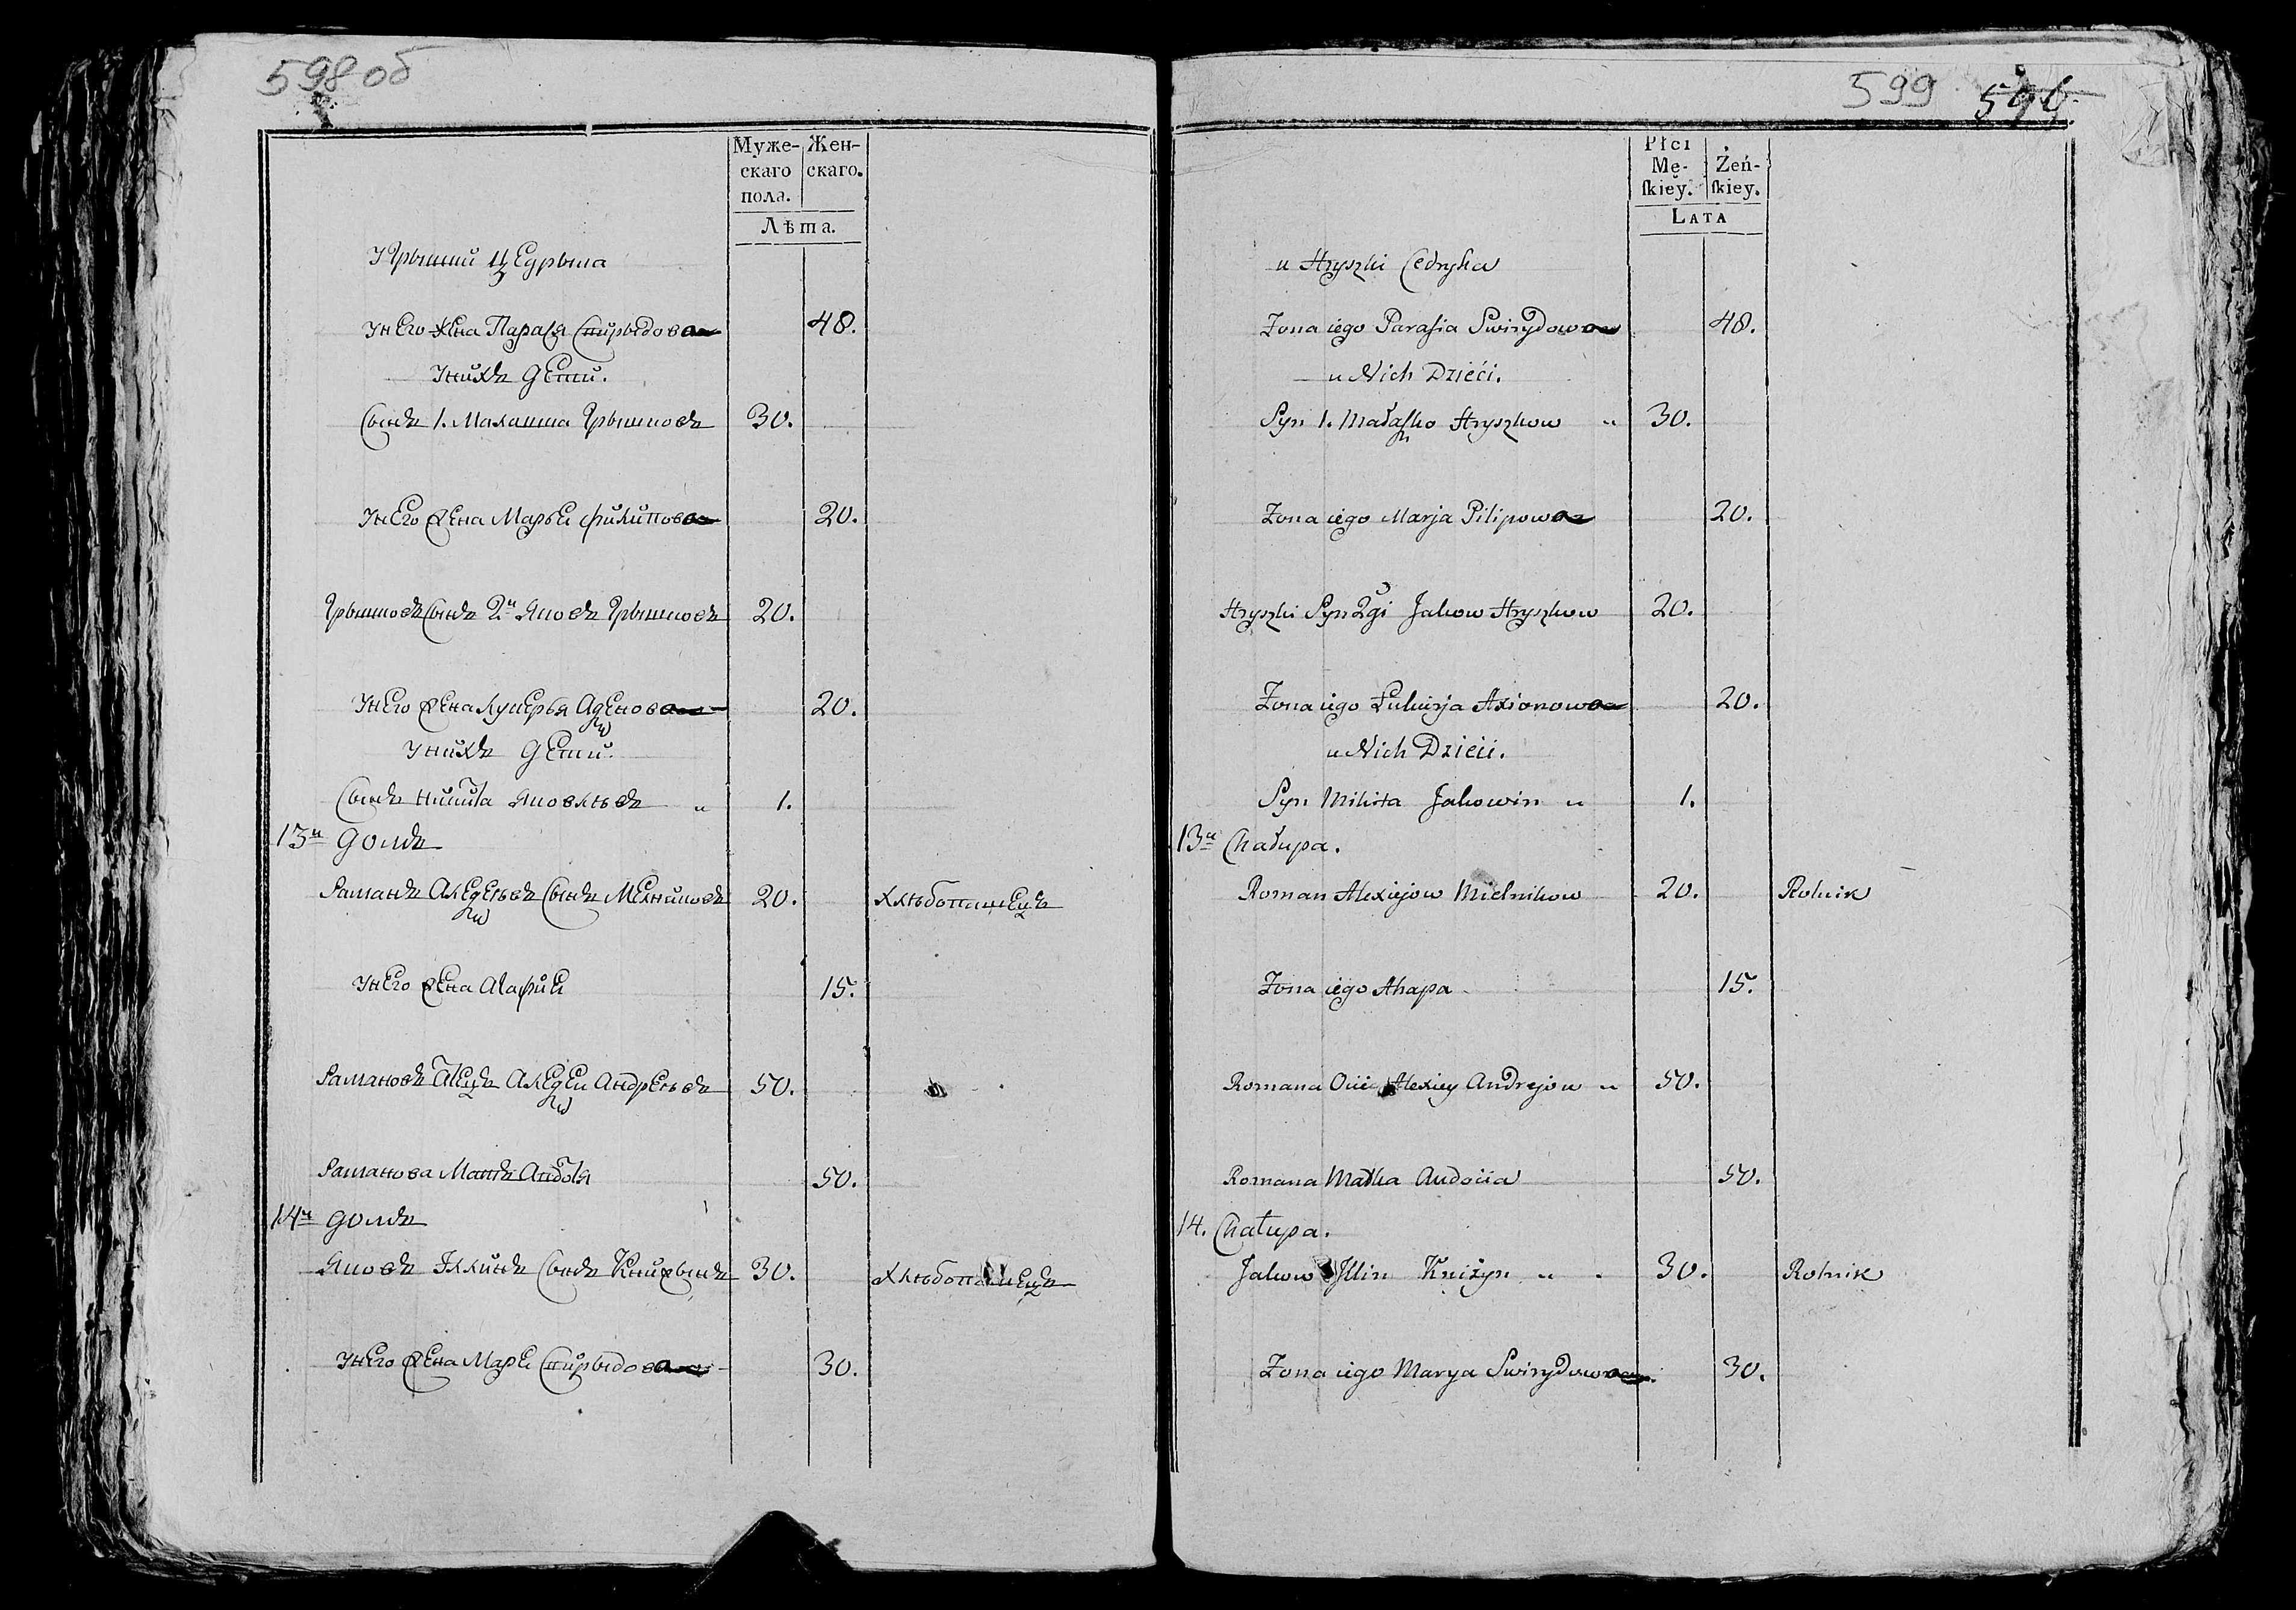 598 об
Муже-
скаго
пола.
Жен-
скаго.
Лѣта.
У Грышки Цедрыка
У него жена Парася Свирыдова 48.
У нихъ дети.
Сынъ 1. Малашка Грышковъ 30.
У него жена Марьи Филипова 20.
Грышковъ Сынъ 2й Яковъ Грышковъ 20.
У него жена Лукерья 20.
У нихъ дети.
Сынъ Никита Яковлевъ " 1.
13й домъ
Раманъ Сынъ Мельниковъ 20. хлѣбопашецъ
У него жена Агафие 15.
Рамановъ Атецъ Андреевъ 50.
Раманова Матъ Авдотя 50.
14й домъ
Яковъ Іллинъ Сынъ Книжынъ 30. хлѣбопашецъ
У него жена Маре Свирыдова 30.
599 596.
Płci
Mę-
ſkiey.
Żeń-
ſkiey.
Lata
u Hryszki Cedryka
Zona iego Parasia Swirydowa 48.
u Nich Dzieći.
Syn 1. Małaszko Hryszkow " 30.
Zona iego Marja Pilipowa 20.
Hryszki Syn 2gi Jakow Hryszkow 20.
Zona iego Łukirja Axionowa 20.
u Nich Dzieci.
Syn Mikita Jakowin " 1.
13й Chałupa.
Roman Alexiejow Mielnikow 20. Rolnik
Zona iego Ahapa 15.
Romana Oiić Alexiey Andrejow " 50.
Romana Matka Audocia 50.
14. Chałupa.
Jakow Jllin Kniżyn " 30. Rolnik
Zona iego Marya Swirydowa 30.